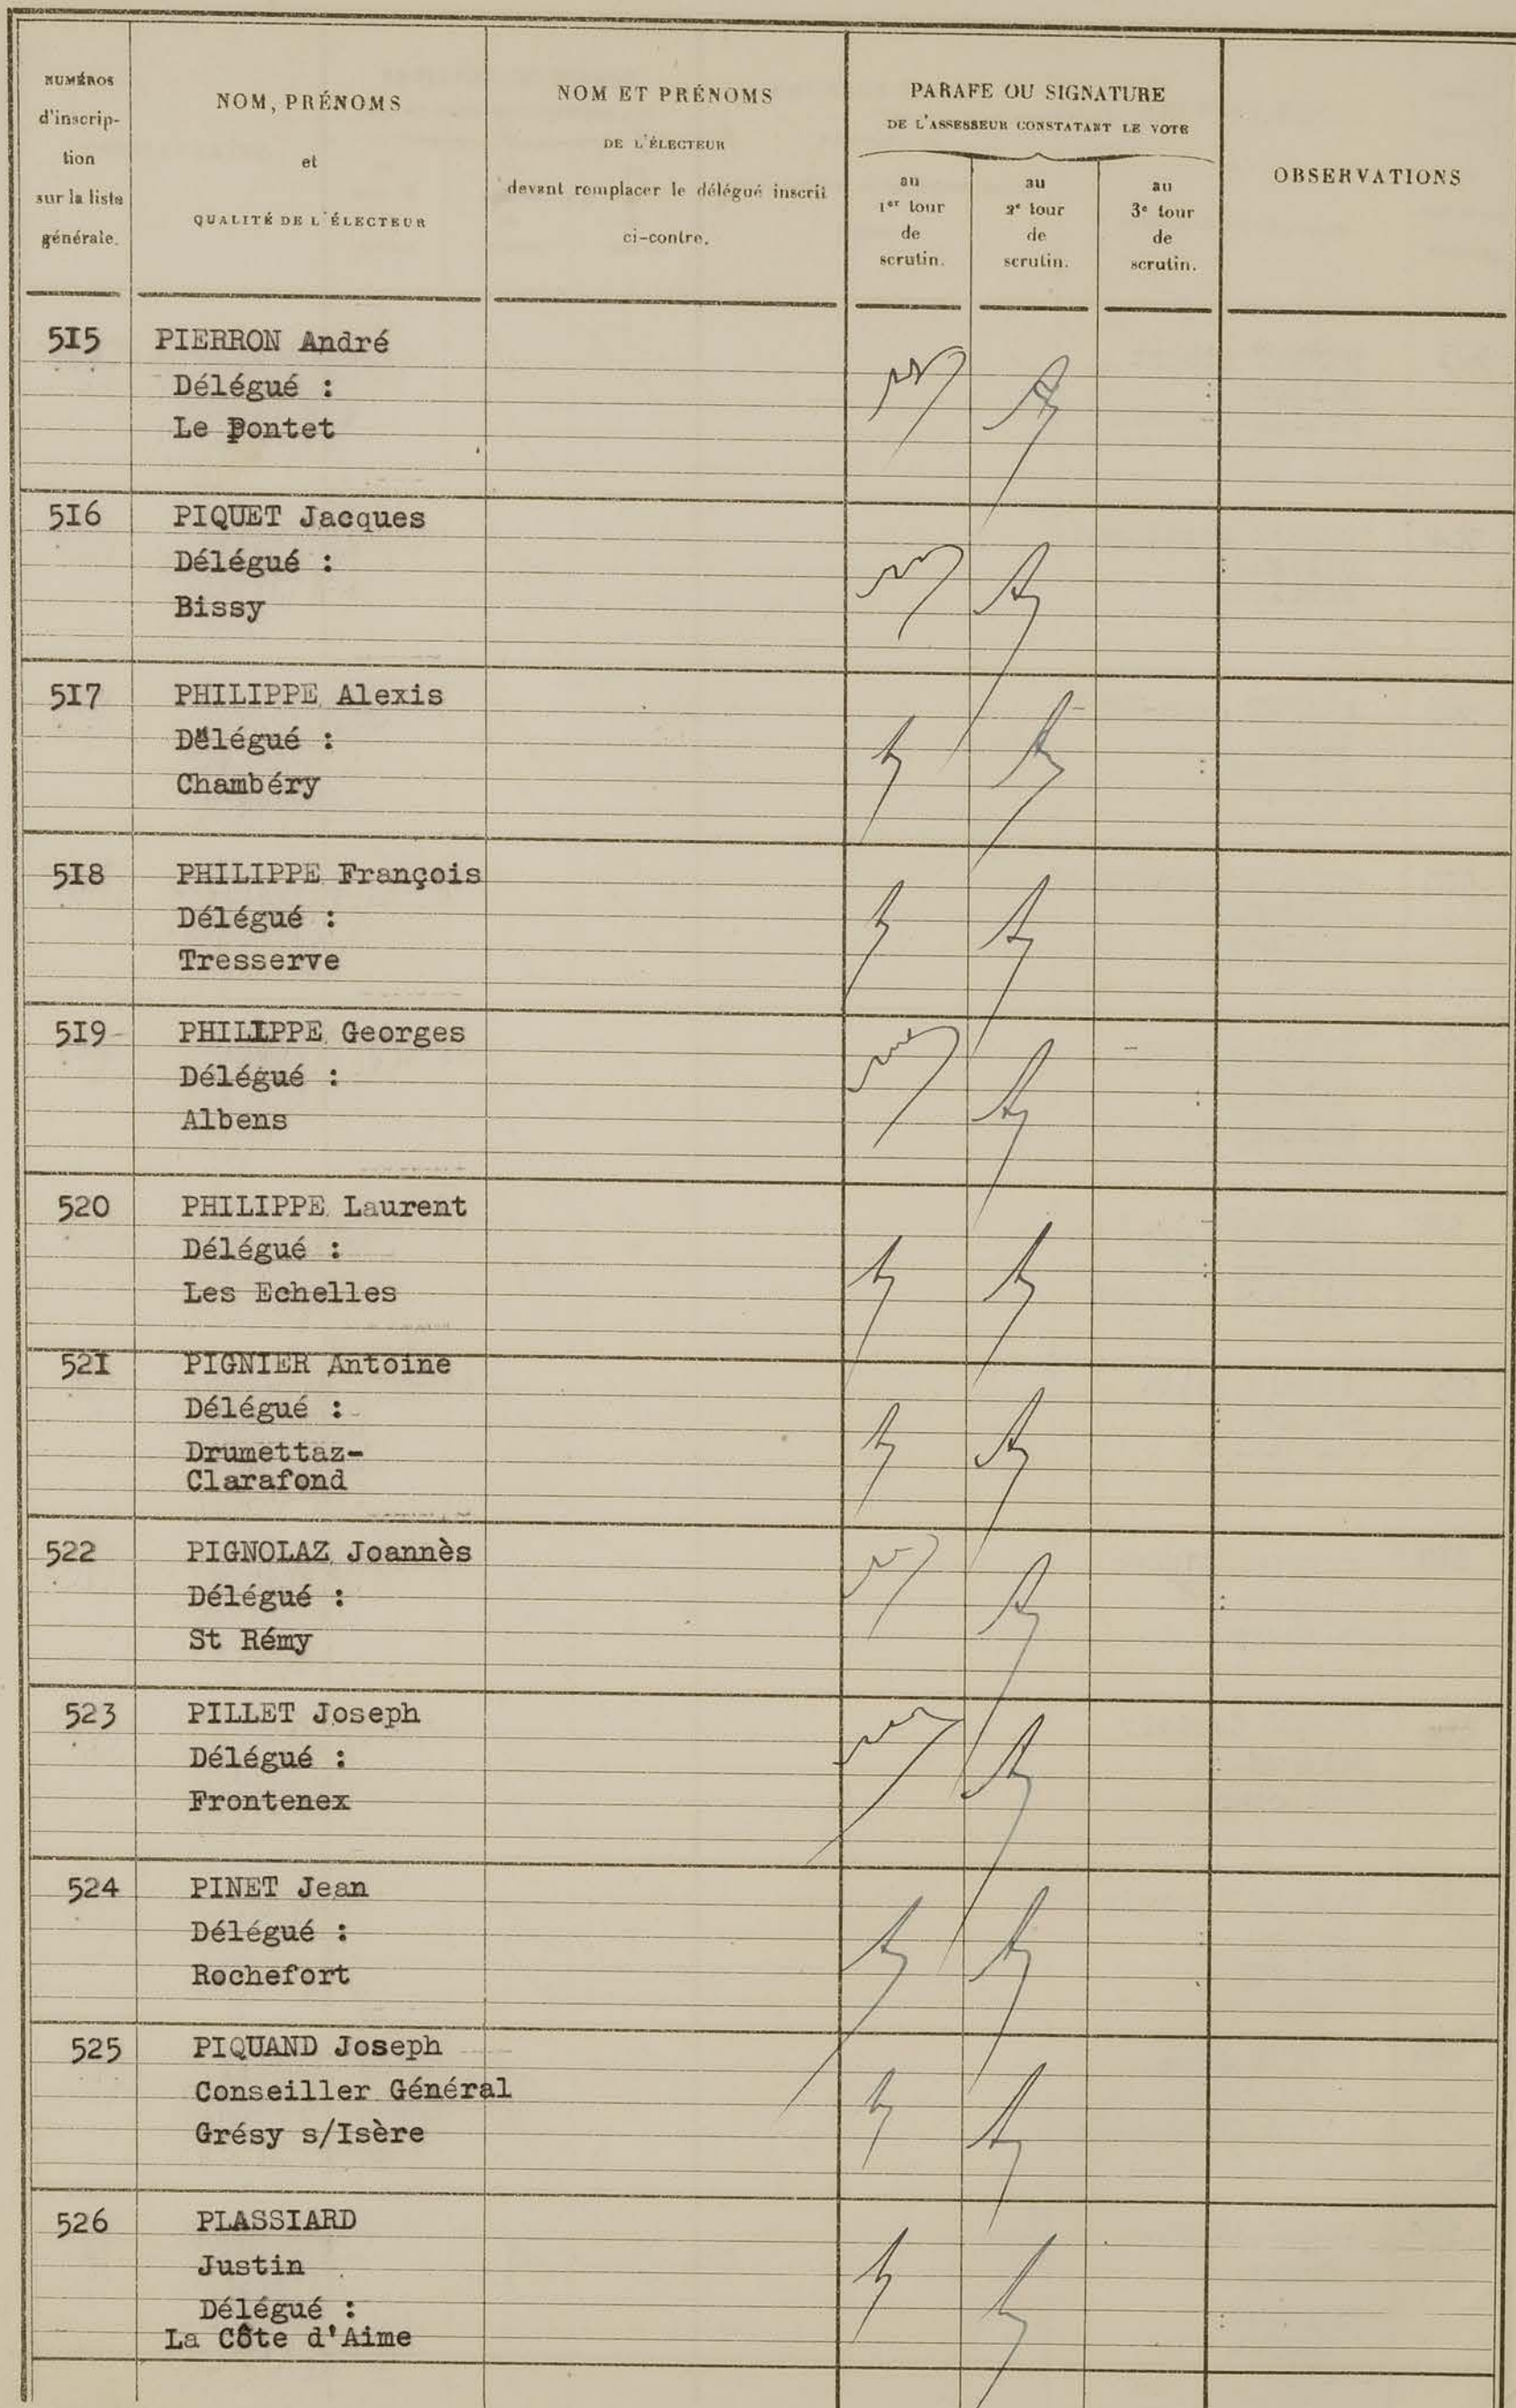 NUMÉROS
d'inscrip-
tion
sur la liste
générale.
NOM, PRÉNOMS
et
QUALITÉ DE L'ÉLECTEUR
NOM ET PRÉNOMS
DE L'ÉLECTEUR
devant remplacer le délégué inscrit
ci-contre.
PARAFE OU SIGNATURE
DE L'ASSESSEUR CONSTATANT LE VOTE
au
1er tour
de
scrutin.
au
2e tour
de
scrutin.
au
3e tour
de
scrutin.
OBSERVATIONS
515 PIERRON André
Délégué :
Le Pontet
516 PIQUET Jacques
Délégué :
Bissy
517 PHILIPPE Alexis
Délégué :
Chambéry
518 PHILIPPE François
Délégué :
Tresserve
519 PHILIPPE Georges
Délégué :
Albens
520 PHILIPPE Laurent
Délégué :
Les Echelles
521 PIGNIER Antoine
Délégué :
Drumettaz-
Clarafond
522 PIGNOLAZ Joannès
Délégué :
St Rémy
523 PILLET Joseph
Délégué :
Frontenex
524 PINET Jean
Délégué :
Rochefort
525 PIQUAND Joseph
Conseiller Général
Grésy s/Isère
526 PLASSIARD
Justin
Délégué :
La Côte d'Aime